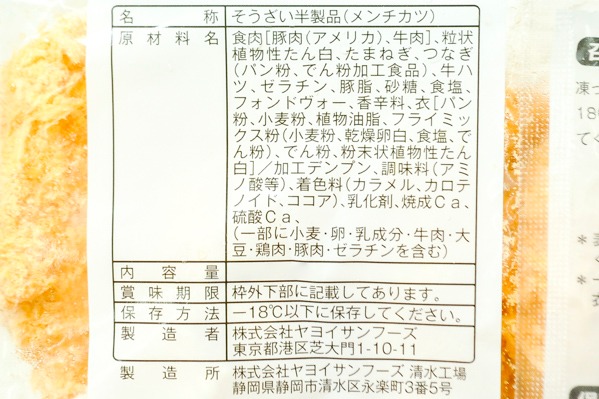 名称 そうざい半製品(メンチカツ)
原材料名 食肉[豚肉(アメリカ)、牛肉]、粒状
植物性たん白、たまねぎ、つなぎ
(パン粉、でん粉加工食品)、牛ハ
ツ、ゼラチン、豚脂、砂糖、食塩、
フォンドヴォー、香辛料、衣[パン
粉、小麦粉、植物油脂、フライミッ
クス粉(小麦粉、乾燥卵白、食塩、で
ん粉)、でん粉、粉末状植物性たん
白]/加工デンプン、調味料(アミ
ノ酸等)、着色料(カラメル、カロテ
ノイド、ココア)、乳化剤、焼成Ca、
硫酸Ca、
(一部に小麦・卵・乳成分・牛肉・大
豆・鶏肉・豚肉・ゼラチンを含む)
内容量
賞味期限 枠外下部に記載してあります。
保存方法 -18℃以下に保存してください。
製造者 株式会社ヤヨイサンフーズ
東京都港区芝大門1-10-11
製造所 株式会社ヤヨイサンフーズ 清水工場
静岡県静岡市清水区永楽町3番5号
凍っ
180
てく